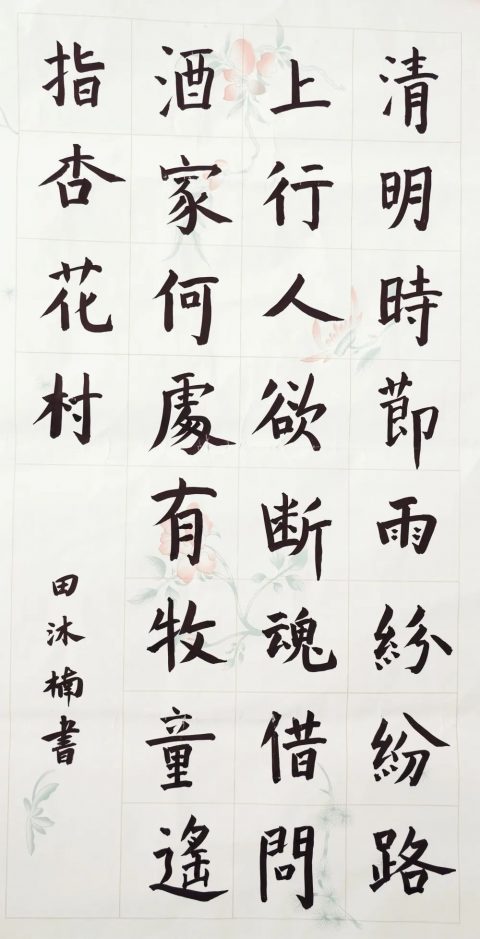 清明時節雨紛紛路
上行人欲断魂借問
酒家何處有牧童遙
指杏花村
田沐楠書